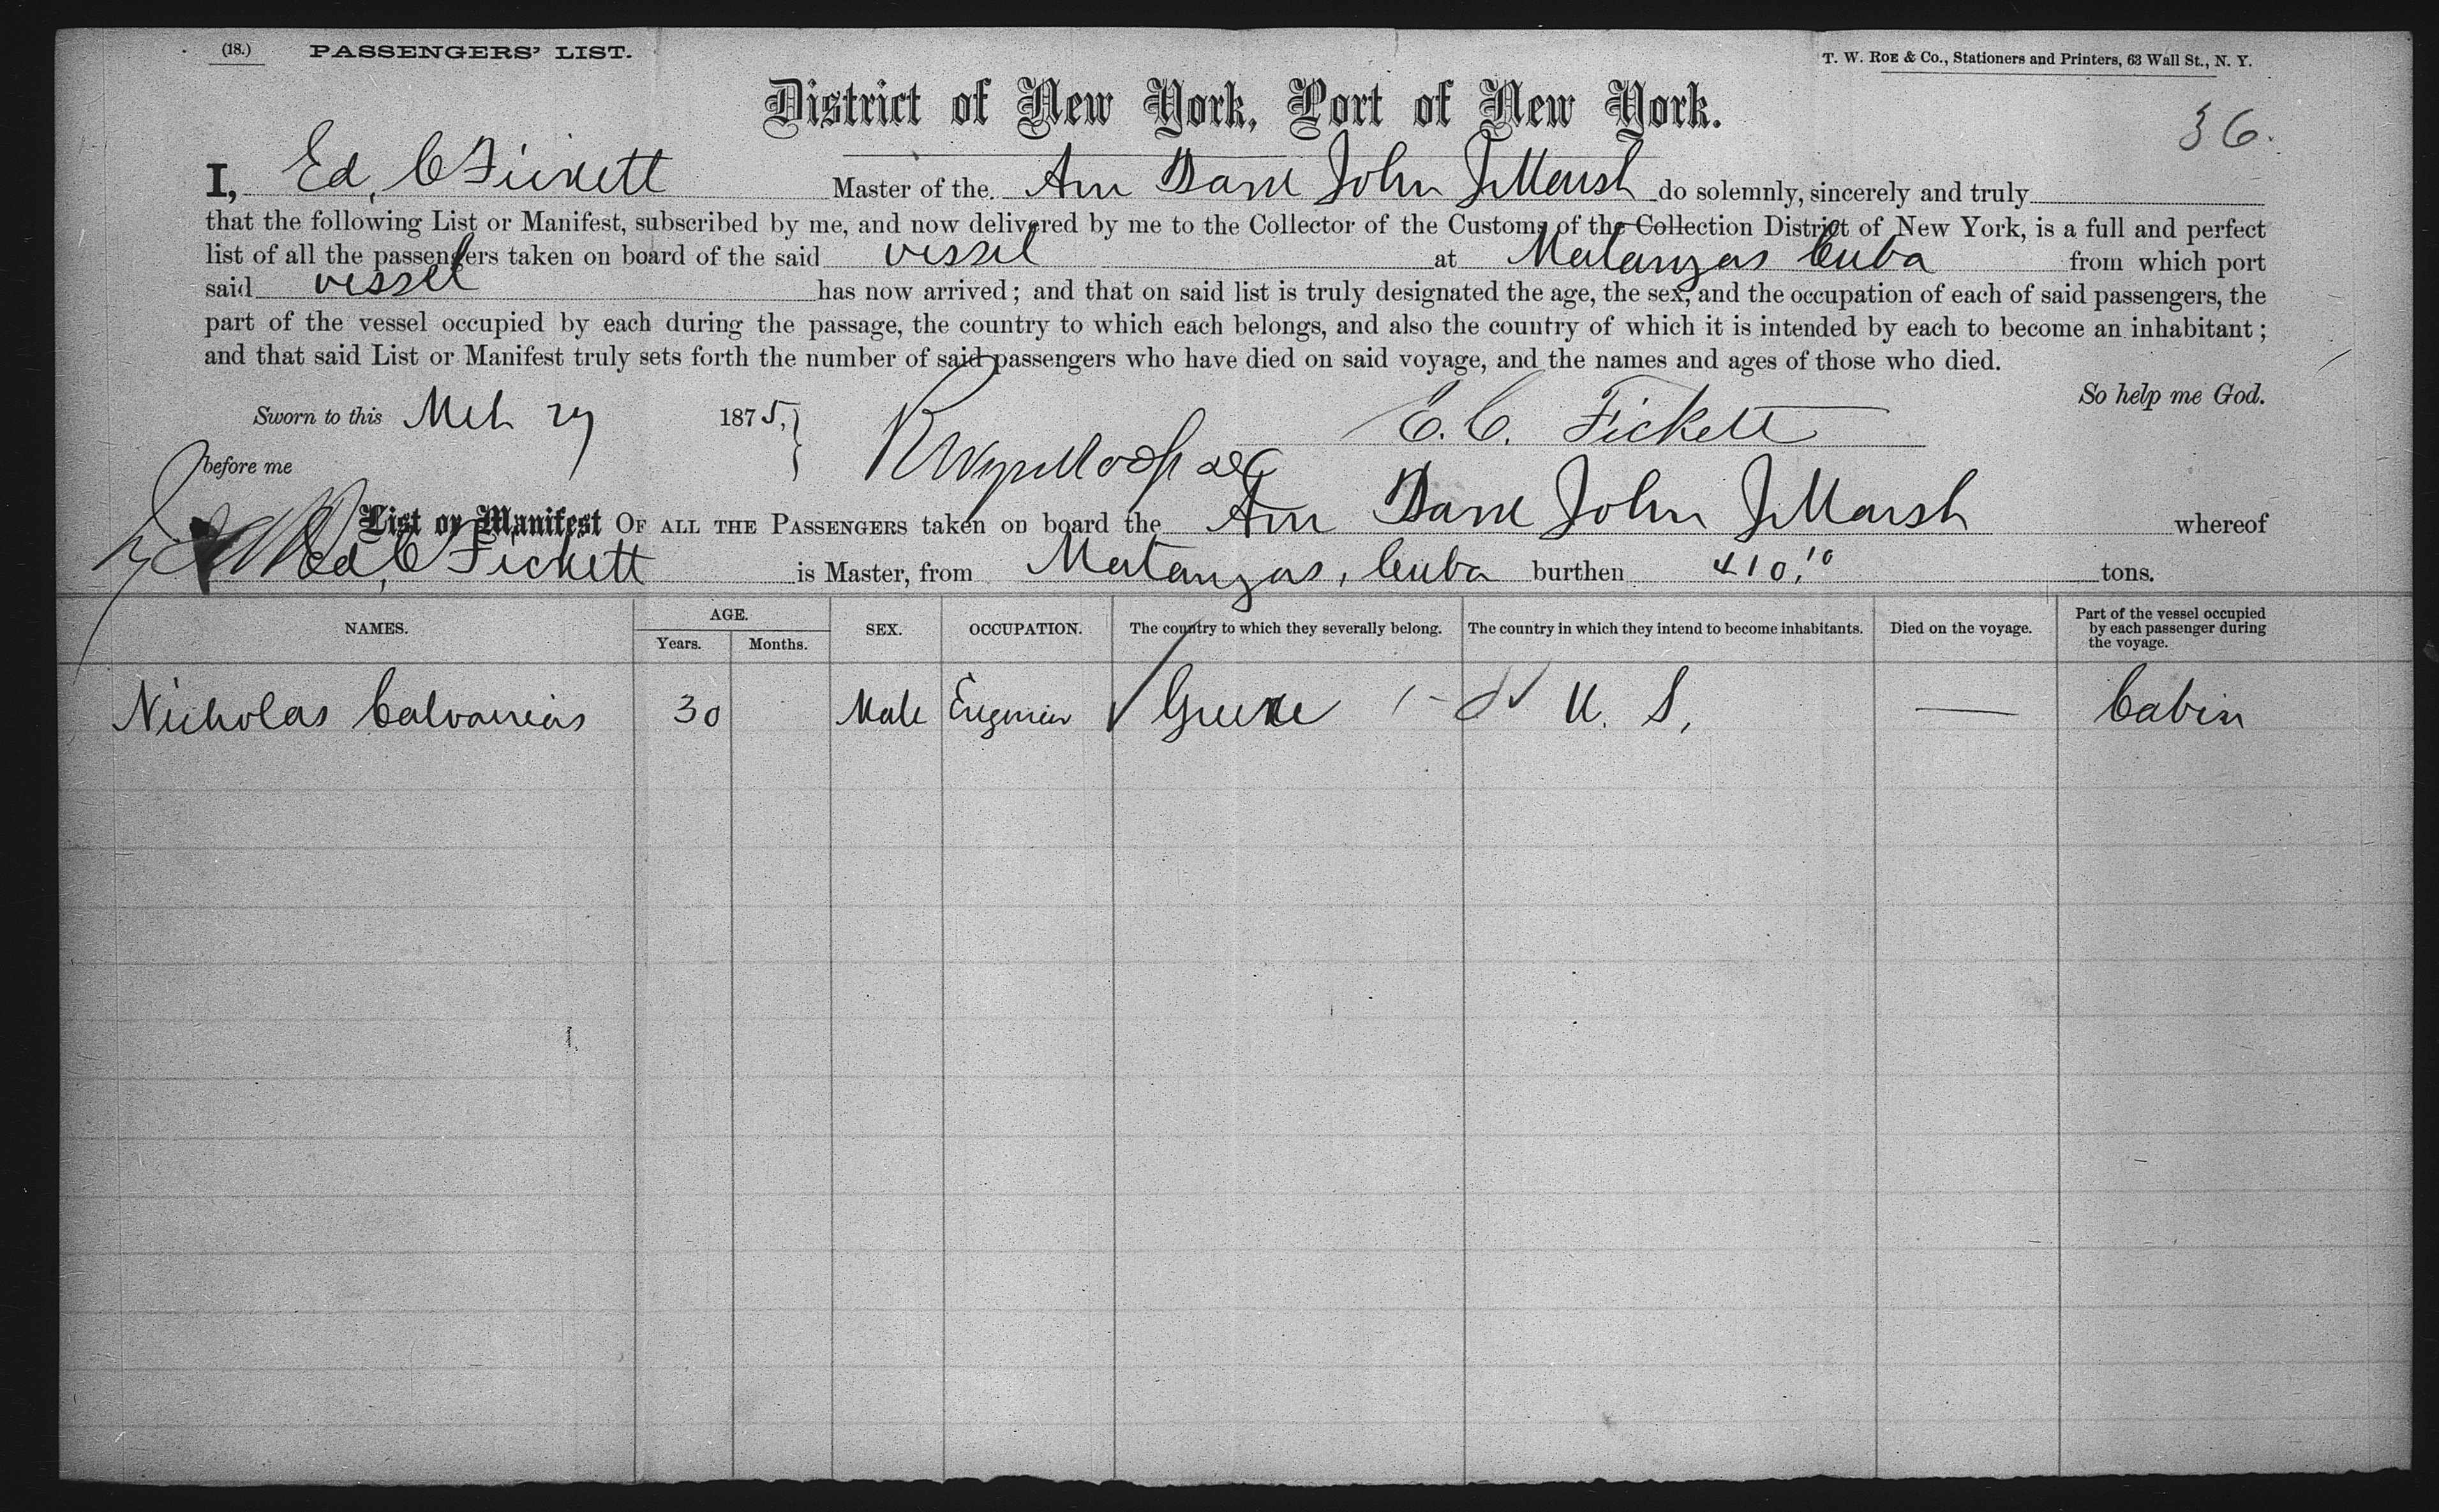 (18.) PASSENGERS' LIST. T. W. ROE & Co., Stationers and Printers, 63 Wall St., N. Y.
District of New York, Port of New York.
36.
I, Ed, C Fickett Master of the Am Bark John J Marsh do solemnly, sincerely and truly
that the following List or Manifest, subscribed by me, and now delivered by me to the Collector of the Customs of the Collection District of New York, is a full and perfect
list of all the passengers taken on board of the said vessel at Matanzas Cuba from which port
said vessel has now arrived; and that on said list is truly designated the age, the sex, and the occupation of each of said passengers, the
part of the vessel occupied by each during the passage, the country to which each belongs, and also the country of which it is intended by each to become an inhabitant;
and that said List or Manifest truly sets forth the number of said passengers who have died on said voyage, and the names and ages of those who died.
So help me God.
Sworn to this Mch 27 1875, E. C. Fickett
before me
List or Manifest OF ALL THE PASSENGERS taken on board the Am Bark John J Marsh whereof
Ed, C Fickett is Master, from Matanzas, Cuba burthen 410.10 tons.
NAMES. AGE. Years. Months. SEX. OCCUPATION. The country to which they severally belong. The country in which they intend to become inhabitants. Died on the voyage. Part of the vessel occupied by each passenger during the voyage.
Nicholas 30 Male Engineer Greece U. S. — Cabin